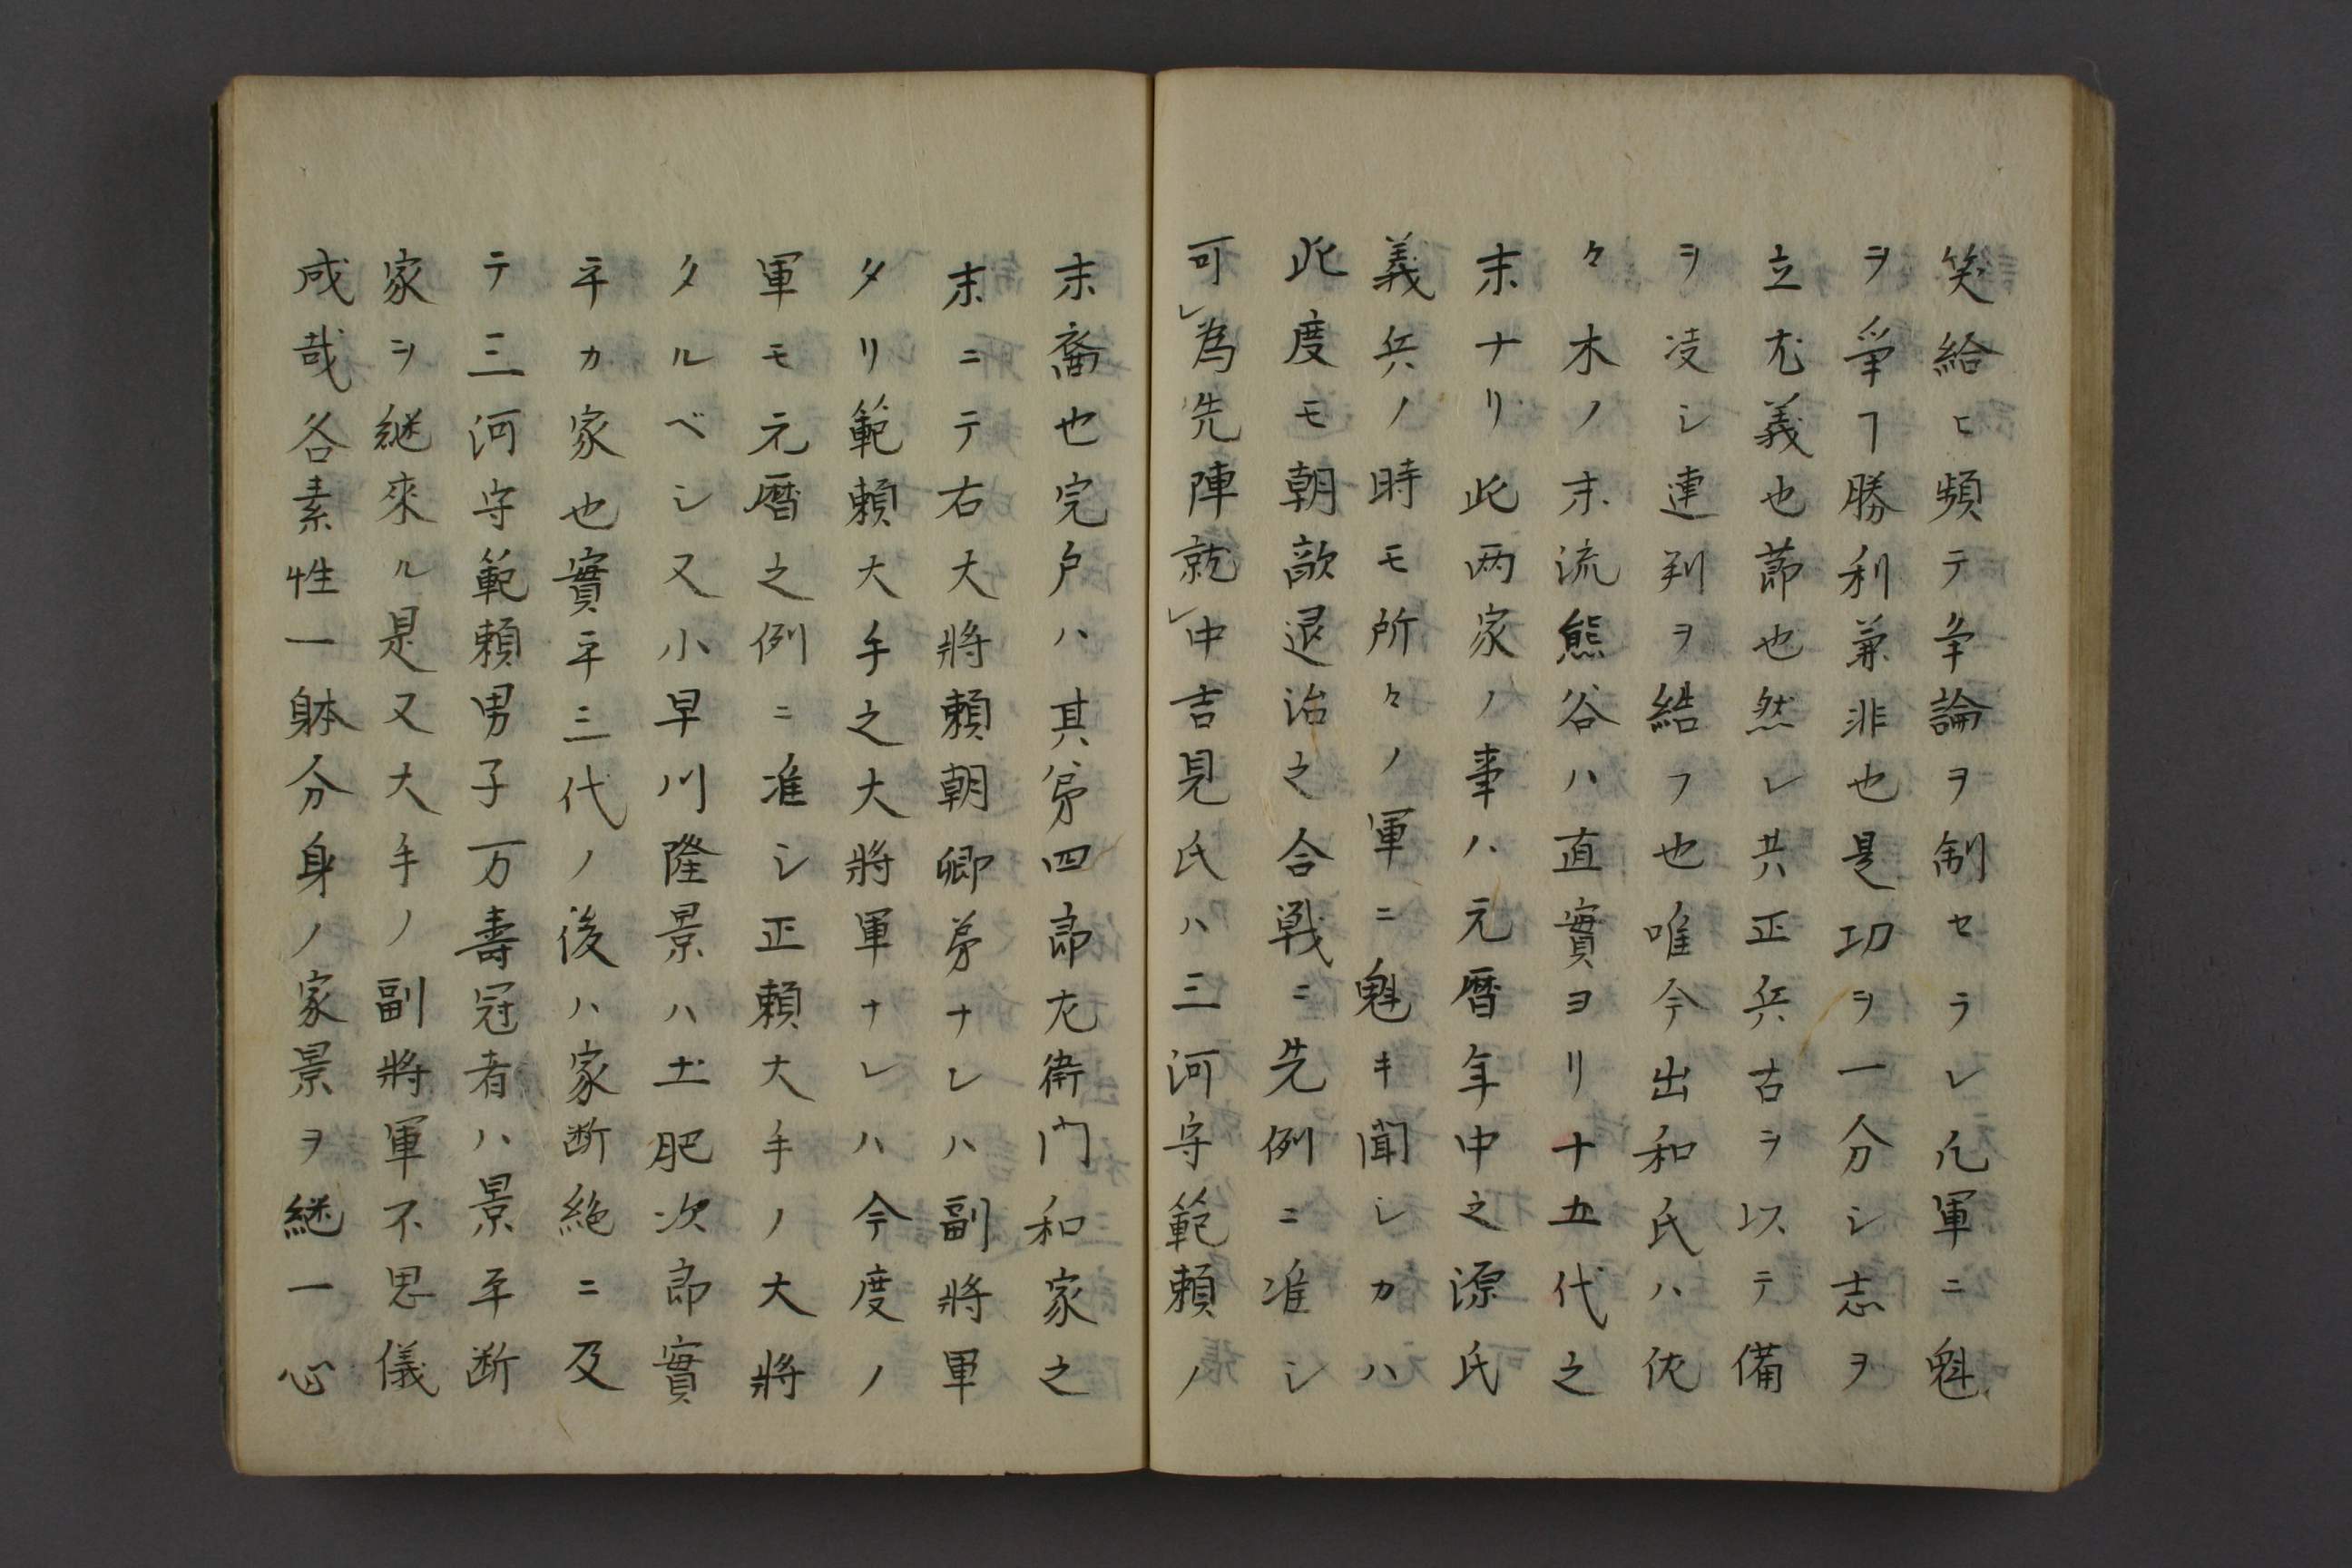 笑給ヒ頻テ争論ヲ制セラレ凡軍ニ魁
ヲ爭フ勝利兼非也是功ヲ一分シ志ヲ
立尤義也莭也然レ共正兵古ヲ以テ備
ヲ凌シ連判ヲ結フ也唯今出和氏ハ佐
々木ノ末流熊谷ハ直實ヨリ十五代之
末ナリ此两家ノ事ハ元暦年中之源氏
義兵ノ時モ所々ノ軍ニ魁キ聞シカハ
此度モ朝敵退治之合戦ニ先例ニ准シ
可レ為先陣就レ中吉見氏ハ三河守範頼ノ
末裔也完戸ハ其弟四郎左衛門和家之
末ニテ右大將頼朝卿弟ナレハ副將軍
タリ範頼大手之大將軍ナレハ今度ノ
軍モ元暦之例ニ准シ正頼大手ノ大將
タルベシ又小早川隆景ハ土肥次郎實
平カ家也實平三代ノ後ハ家断絶ニ及
テ三河守範頼男子万壽冠者ハ景平断
家ヲ継來ル是又大手ノ副將軍不思儀
成哉各素性一躰分身ノ家景ヲ継一心